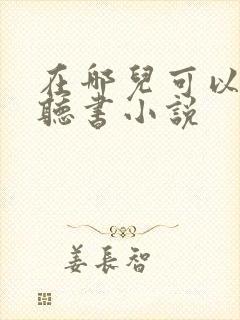 在哪兒可以
聽書小説
姜長智